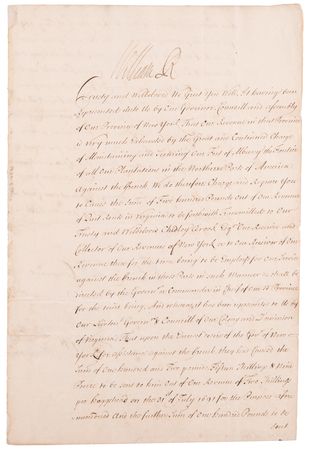 William R
Trusty and Welbeloved We Greet you Well. It having been
represented unto Us by Our Governor Councill and Assembly
of Our Province of New York That Our Revenue in that Province
is very much Exhausted by the Great and Continued Charge
of Maintaining and Securing Our Fort of Albany the Frontier
of all Our Plantations in the Northern Parts of America
Against the French We do therefore Charge and Require You
to Cause the Sum of Five hundred Pounds out of Our Revenue
of Quit Rents in Virginia to be forthwith Transmitted to Our
Trusty and Welbeloved Chidley Brook Esqr Our Receiver and
Collector of Our Revenues of New York or to Our Receiver of Our
Revenue there for the time being to be Employd for Our Service
against the French in those Parts in such Manner as shall be
directed by the Governor or Commander in Chief of Our sd Province
for the time being. And whereas it has been represented to Us by
Our Governor & Councill of Our Colony and Dominion
of Virginia That upon the Earnest desire of the Govr of New
York for assistance against the French they had Caused the
Sum of One hundred and Two pounds Fifteen Shillings & Nine
Pence to be sent to him out of Our Revenue of Two Shillings
per hogshead on the 31 of July 1691 for the Purpose afore
mentioned And the further Sum of One hundred Pounds to be
sent